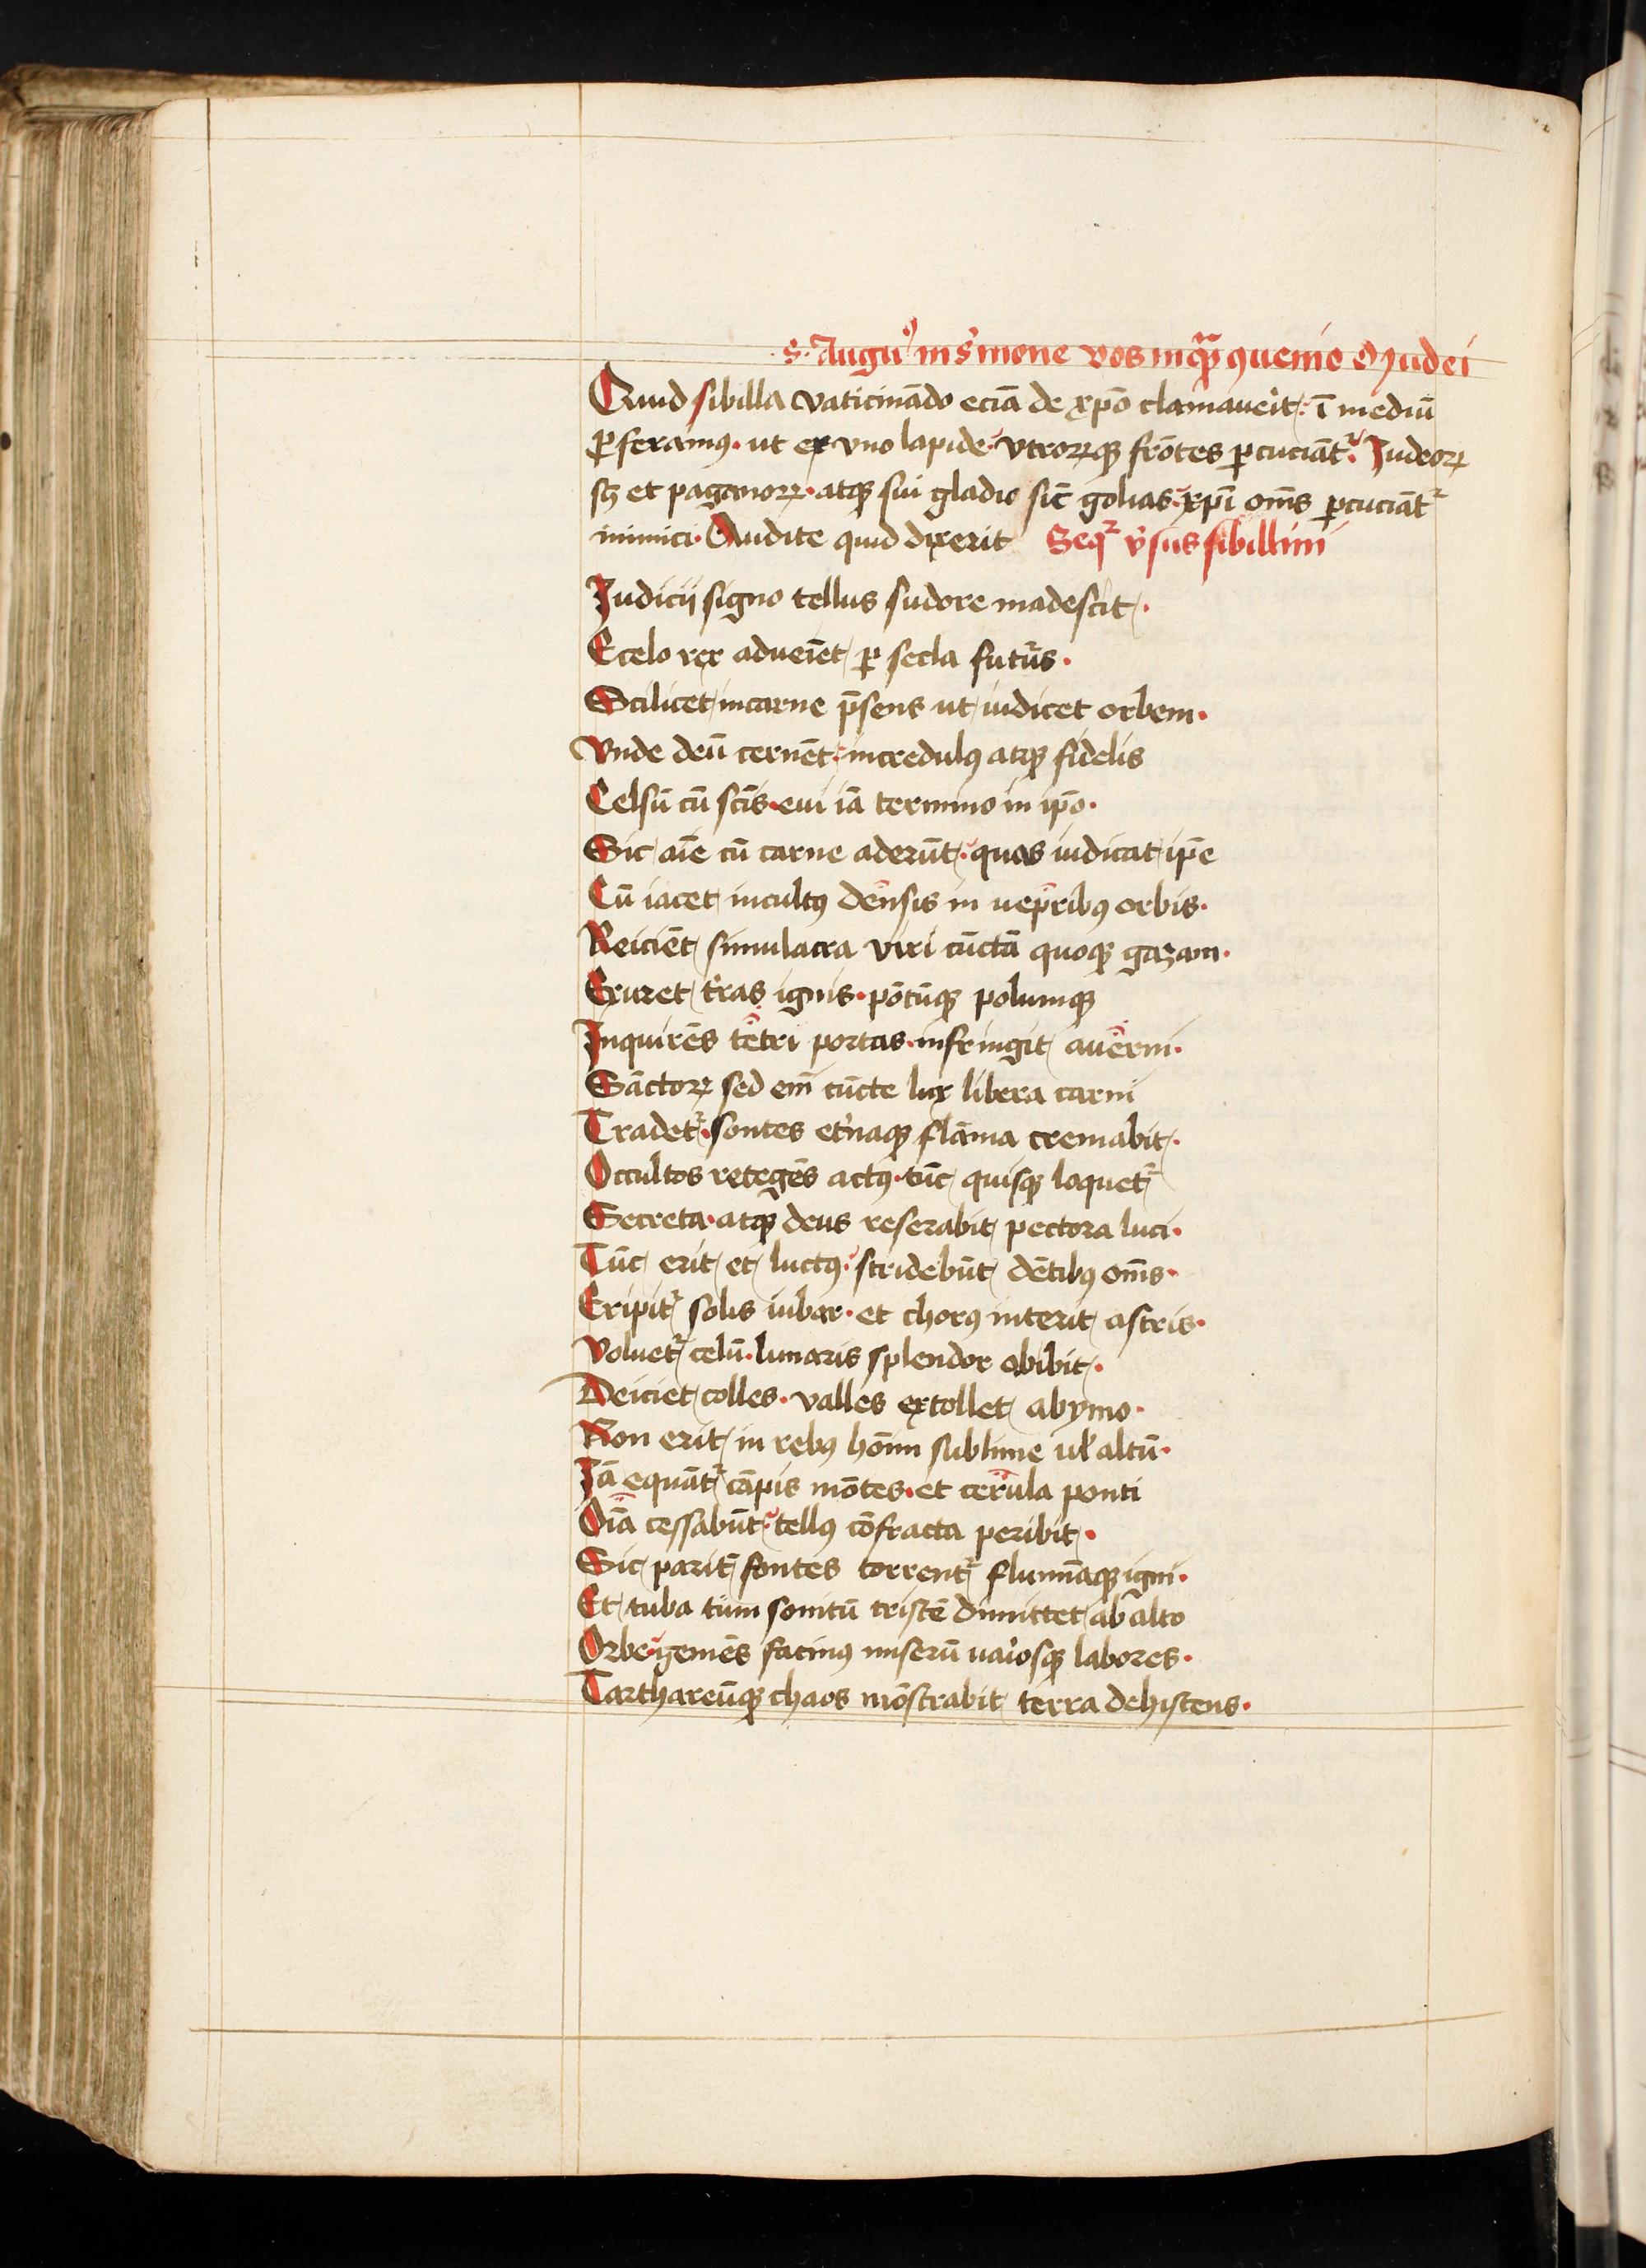 S. Augu⁹ in s̄mone vos inqͣꝫ ꝯuenio o Judei
Quid sibilla vaticinādo eciā de xp̄o clamauerit. ī mediū
ꝓferamꝰ. ut ex vno lapide vtrorꝝqꝫ frōtes ꝑcuciāt᷑. Judeoꝝ
sꝫ et paganoꝝ. atqꝫ sui gladio sic̄ golias. xp̄i om̄s ꝑcuciāt᷑
inimici. Audite quid dixerit Seq᷑ v̄sus sibillini
Judicij signo tellus sudore madescit.
E celo rex adueīet ꝑ secla futūs.
Scilicet in carne p̄sens ut iudicet orbem.
Vnde deū cernēt incredulꝰ atqꝫ fidelis
Celsū cū sc̄is. eui iā termino in ip̄o.
Sic aīe cū carne aderūt. quas iudicat ip̄e
Cū iacet incultꝰ densis in uepribꝰ orbis.
Reiciēt simulacra viri cūctā quoqꝫ gazam.
Exuret t̄ras ignis. pōtūqꝫ polumqꝫ
Inquirēs tetri portas. infringit auerni.
Sāctoꝝ sed em̄ cūcte lux libera carni
Tradet᷑. sontes et̄naqꝫ flāma cremabit.
Occultos retegēs actꝰ. tūc quisqꝫ loquet᷑
Secreta. atqꝫ deus reserabit pectora luci.
Tūc erit et luctꝰ. stridebūt dētibꝰ om̄s.
Eripit᷑ solis iubar. et chorꝰ interit astris.
Voluet᷑ celū. lunaris splendor obibit.
Deiciet colles. valles extollet ab ymo.
Non erit in rebꝰ hōim sublime uł altū.
Jā equāt᷑ cāpis mōtes. et cerula ponti
Oīa cessabūt. tellꝰ cōfracta peribit.
Sic parit̄ fontes torrent᷑ fluminaqꝫ igni.
Et tuba tum sonitū tristē dimittet ab alto
Orbe gemēs facinꝰ miserū uaiosqꝫ labores.
Tarthareūqꝫ chaos mōstrabit terra dehiscens.